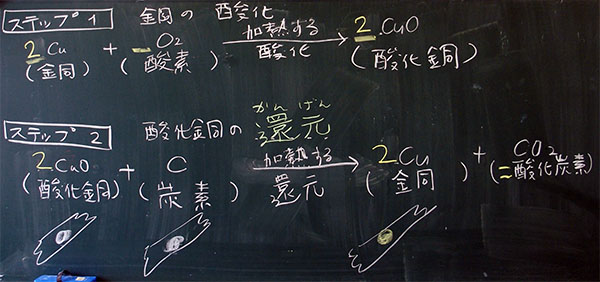 ステップ1 銅の酸化
2Cu + O₂ 加熱する→ 2CuO
(銅) (酸素) 酸化 (酸化銅)
かんげん
ステップ2 酸化銅の還元
2CuO + C 加熱する→ 2Cu + CO₂
(酸化銅) (炭素) 還元 (銅) (二酸化炭素)